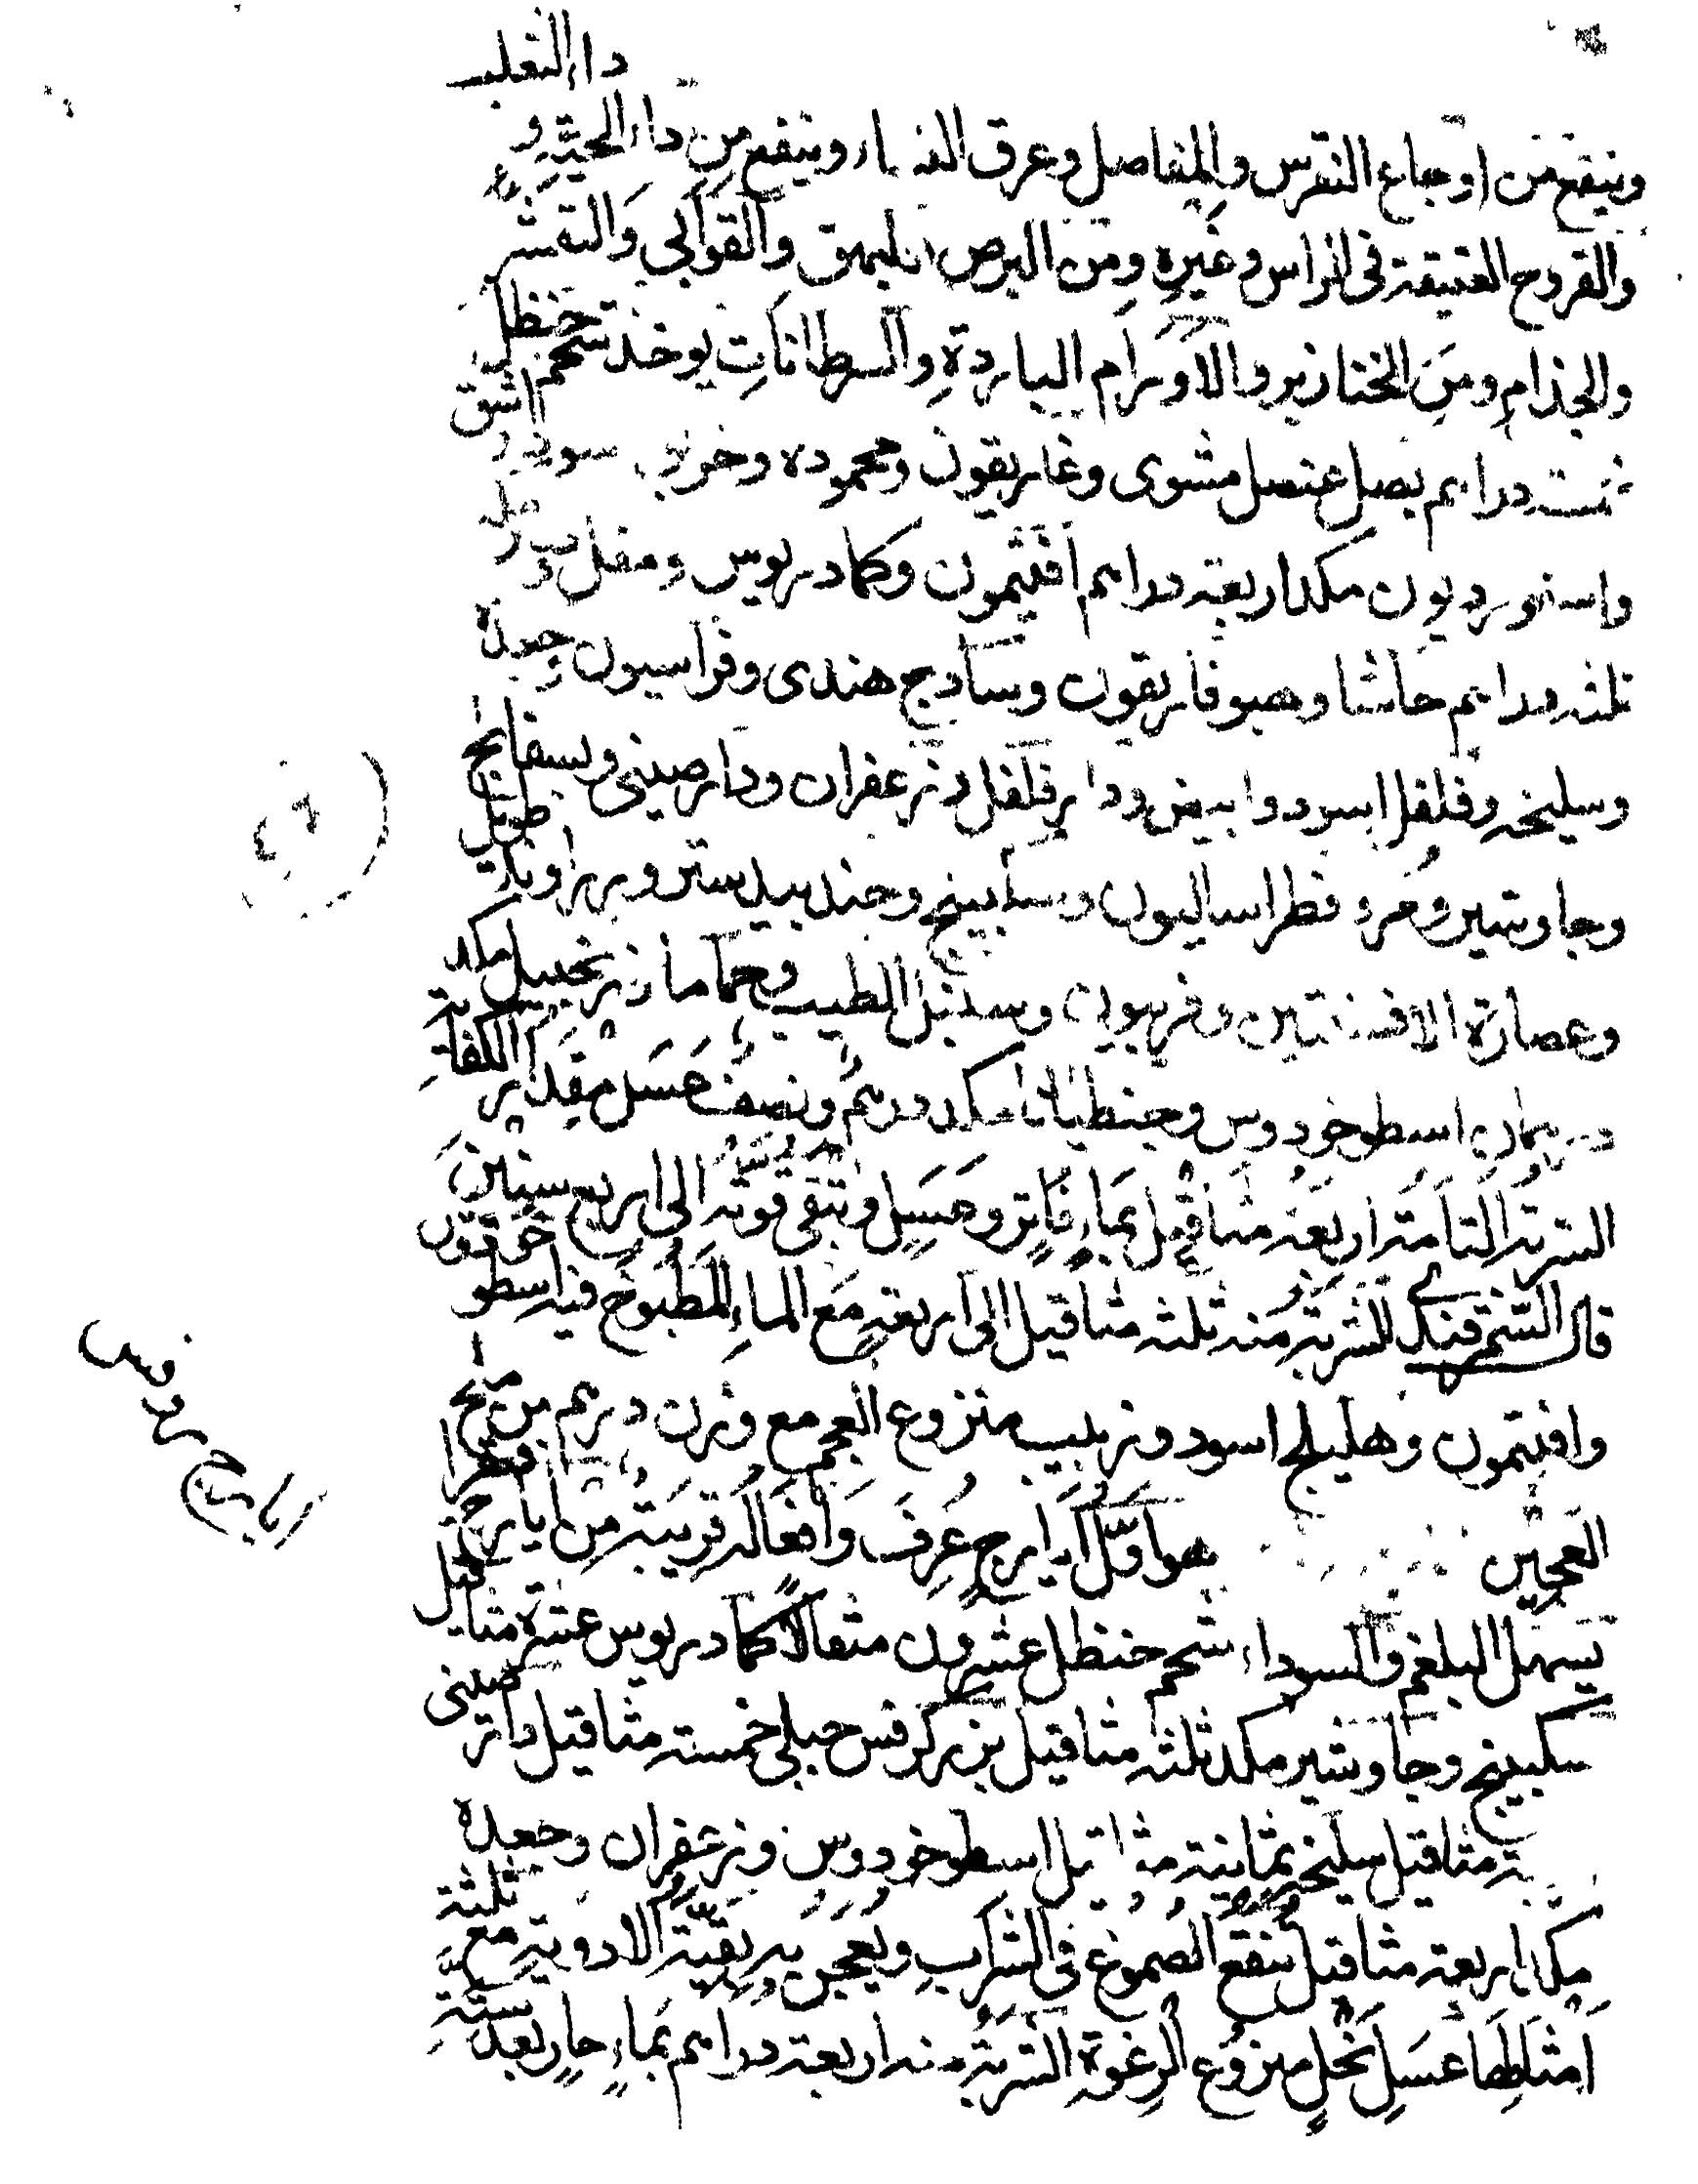 وينفع من اوجاع النقرس والمفاصل وعرق النساء وينفع من داء الحية و داء الثعلب
والقروح العتيقة فى الراس وغيره ومن البرص والبهق والقوابى والتقشر
والجذام ومن الخنازير والاورام الباردة والسرطانات يوخذ شحم حنظل
ستة دراهم بصل عنصل مشوى وغاريقون ومحموده وخربق اسود واشق
واسقورديون مكد اربعة دراهم افتيمون وكمادريوس ومقل و
ثلثه دراهم حاشا وهيوفاريقون وسادج هندى وفراسيون وجعدة
وسليخه وفلفل اسود وابيض ودارفلفل وزعفران ودارصينى وبسفايج
وجاوشير ومر وفطراساليون وسكبينج وجندبيدستر وزراوند طويل
وعصارة الافسنتين وفربيون وسنبل الطيب وحماما وزنجبيل مكد
درهمان اسطوخودوس وجنطيانا مكد درهم ونصف عسل مقدار الكفاية
الشربة التامة اربعة مثاقيل بماء فاتر وعسل وتبقى قوته الى اربع سنين
قال السمرقندى الشربة منه ثلثه مثاقيل الى اربعة مع الماء المطبوخ فيه اسطوخودوس
وافتيمون وهليلج اسود وزبيب منزوع العجم مع وزن درهم من ملح
العجين هو اول ايارج عرف وافعاله قريبة من ايارج فيقرا
يسهل البلغم والسوداء شحم حنظل عشرون مثقالا كمادريوس عشرة مثاقيل
سكبينج وجاوشير مكد ثلثه مثاقيل بزر كرفس جبلى خمسة مثاقيل دارصينى
مثاقيل سليخه ثمانية مثاقيل اسطوخودوس وزعفران وجعدة
مكد اربعة مثاقيل تنقع الصموغ فى الشراب ويعجن به بقية الادوية مع ثلثة
امثالها عسل نحل منزوع الرغوة الشربة منه اربعة دراهم بماء حار بعد ستة
ايارج روفس